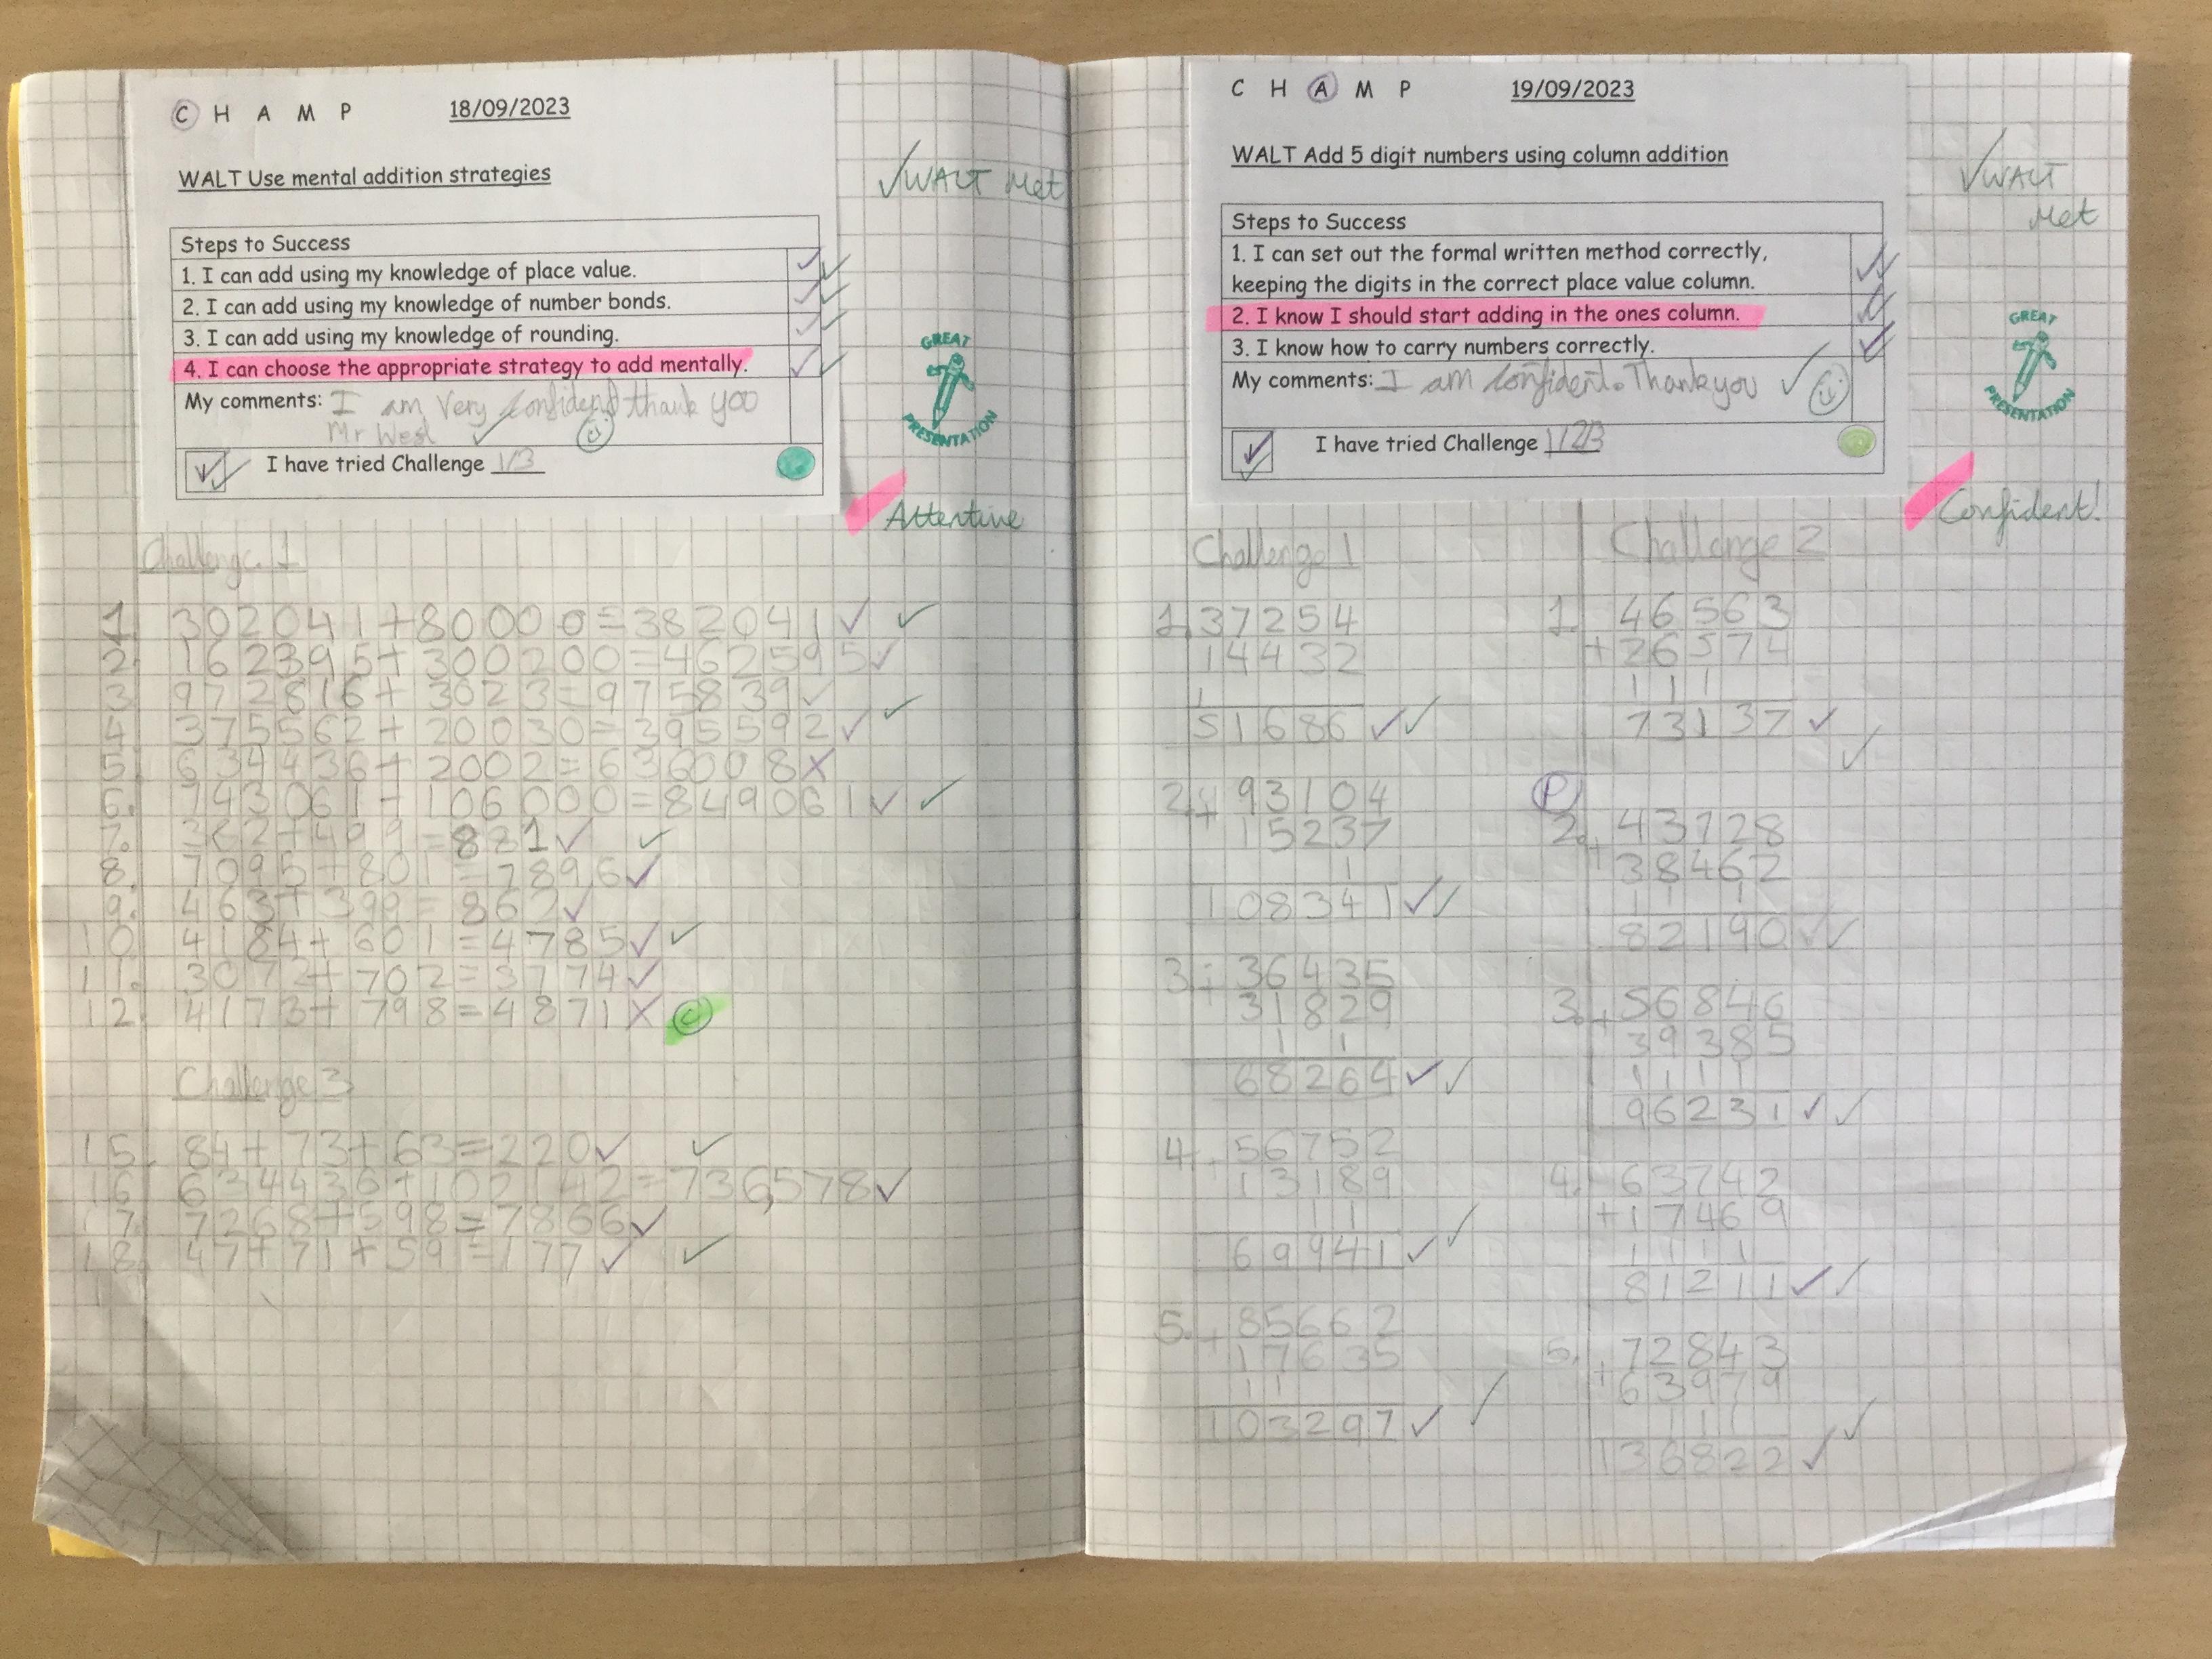 C H A M P 18/09/2023
WALT Use mental addition strategies
Steps to Success
1. I can add using my knowledge of place value.
2. I can add using my knowledge of number bonds.
3. I can add using my knowledge of rounding.
4. I can choose the appropriate strategy to add mentally.
My comments: I am very confident thank you
Mr West
I have tried Challenge 1/3
✓WALT Met
GREAT
PRESENTATION
Attentive
Challenge 1
1. 302041+80000=382041✓ ✓
2. 162395+300200=462595✓
3. 972816+3023=975839✓
4. 375562+20030=395592✓ ✓
5. 634436+2002=636008X
6. 743061+106000=849061✓ ✓
7. 382+499=881✓ ✓
8. 7095+801=7896✓
9. 463+399=862✓
10. 4184+601=4785✓ ✓
11. 3072+702=3774✓
12. 4173+798=4871X C
Challenge 3
15. 84+73+63=220✓ ✓
16. 634436+102142=736,578✓
17. 7268+598=7866✓
18. 47+71+59=177✓ ✓
C H A M P 19/09/2023
WALT Add 5 digit numbers using column addition
Steps to Success
1. I can set out the formal written method correctly,
keeping the digits in the correct place value column.
2. I know I should start adding in the ones column.
3. I know how to carry numbers correctly.
My comments: I am confident. Thankyou ✓
I have tried Challenge 1/2/3
✓WALT
Met
GREAT
PRESENTATION
Confident!
Challenge 1
1. 37254
14432
1
51686 ✓✓
2. + 93104
15237
1
108341 ✓✓
3. + 36435
31829
1 1
68264 ✓✓
4. 56752
13189
1 1
69941 ✓✓
5. + 85662
17635
1 1
103297 ✓ ✓
Challenge 2
1. 46563
+26574
1 1 1
73137 ✓
✓
P
2. + 43728
38462
1 1 1
82190 ✓✓
3. + 56846
39385
1 1 1 1
96231 ✓✓
4. 63742
+17469
1 1 1 1
81211 ✓✓
5. 72843
+63979
1 1 1
136822 ✓ ✓